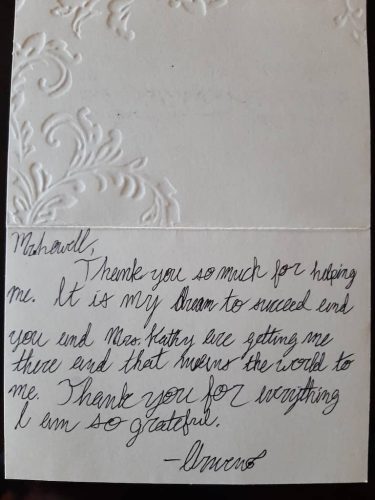 Mr. Howell,
Thank you so much for helping
me. It is my Dream to succeed and
you and Mrs. Kathy are getting me
there and that means the world to
me. Thank you for everything
I am so grateful.